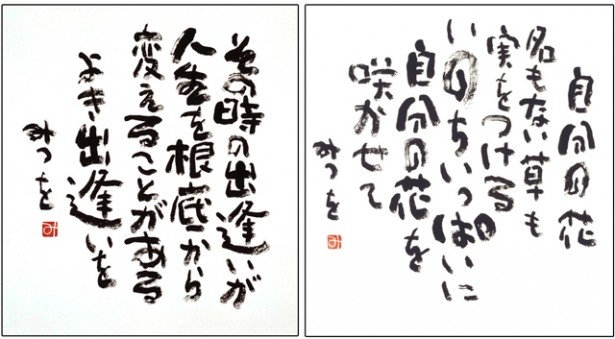 その時の出逢いが
人生を根底から
変えることがある
よき出逢いを
みつを
み
自分の花
名もない草も
実をつける
いのちいっぱいに
自分の花を
咲かせて
みつを
み